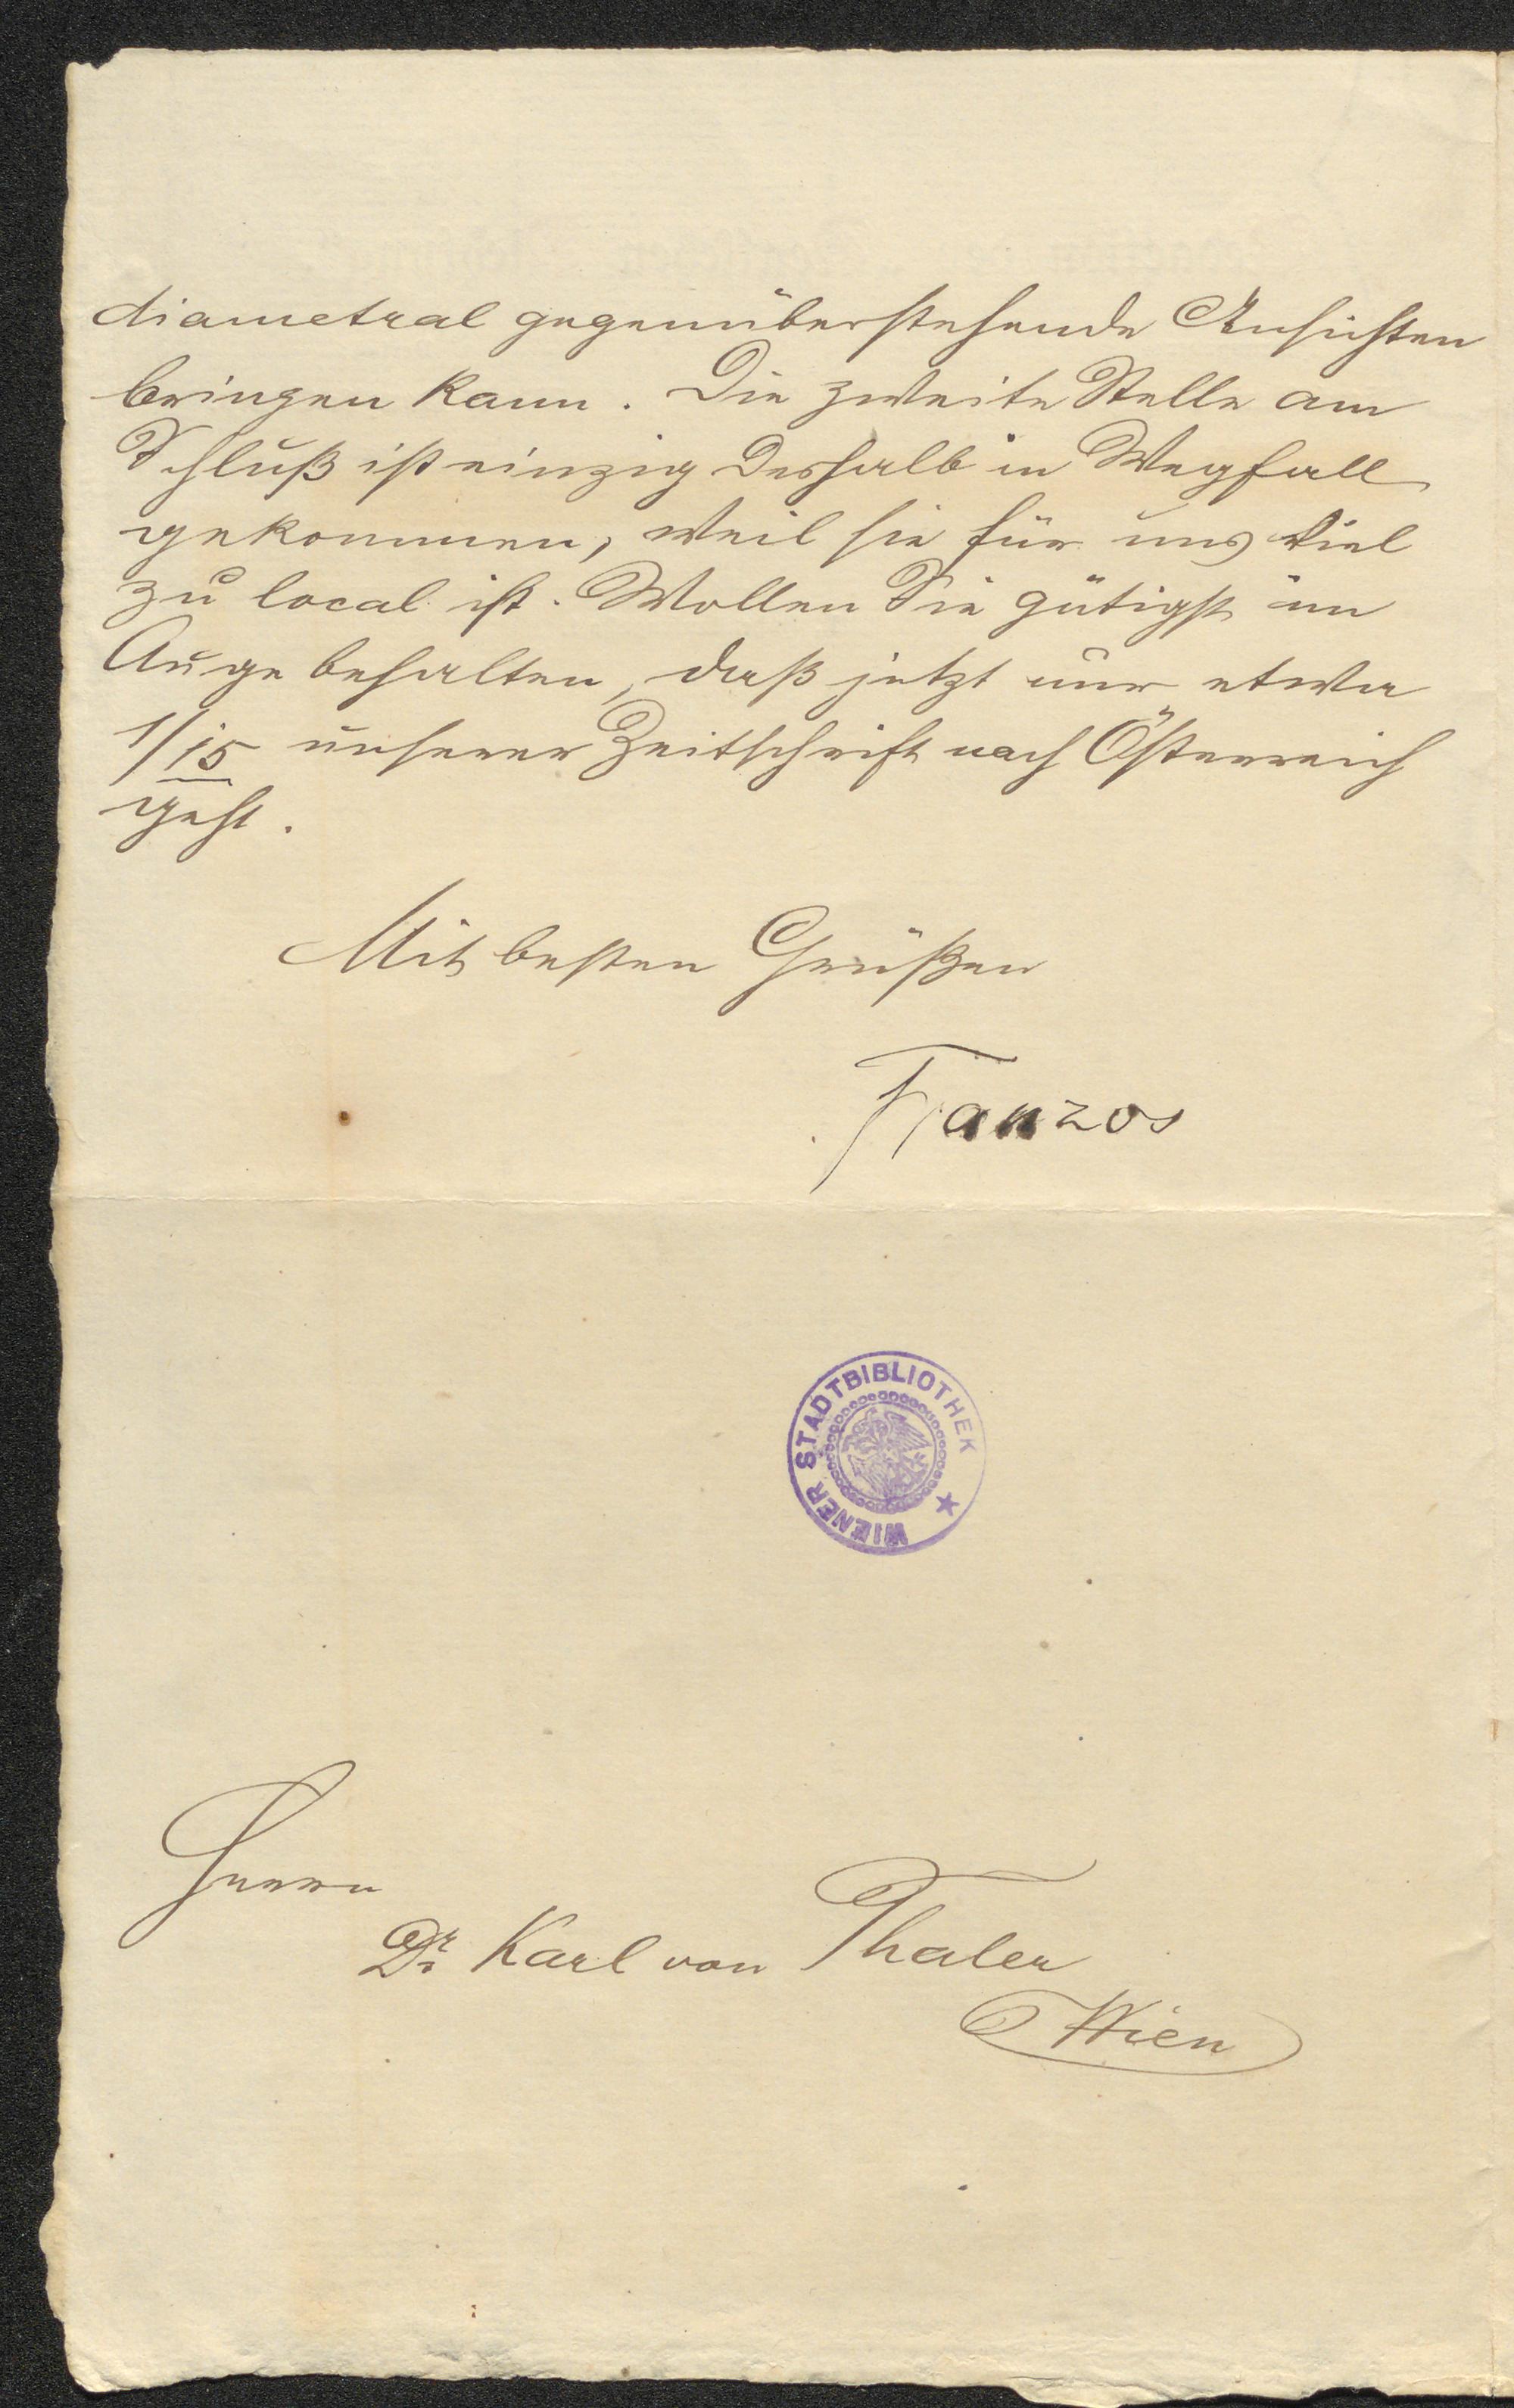 diametral gegenüberstehende Ansichten
bringen kann. Die zweite Stelle am
Schluß ist einzig deshalb in Wegfall
gekommen, weil sie für uns viel
zu local ist. Wollen Sie gütigst im
Auge behalten, daß jetzt nur etwa
1/15 unserer Zeitschrift nach Österreich
geht.
Mit besten Grüßen
Franzos
WIENER STADTBIBLIOTHEK
Herrn
Dr. Karl von Thaler
Wien